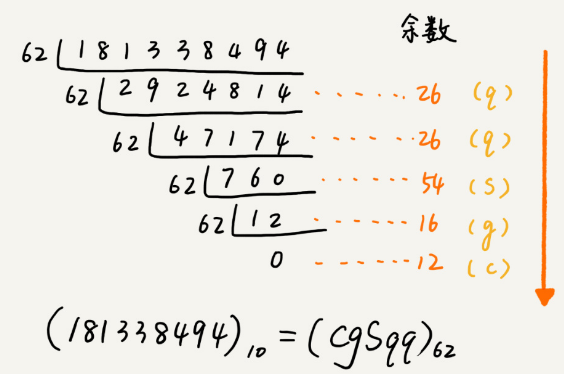 余数
62 181338494
62 2924814 ······ 26 (q)
62 47174 ······ 26 (q)
62 760 ······ 54 (S)
62 12 ······ 16 (g)
0 ······ 12 (c)
(181338494)₁₀ = (cgSqq)₆₂